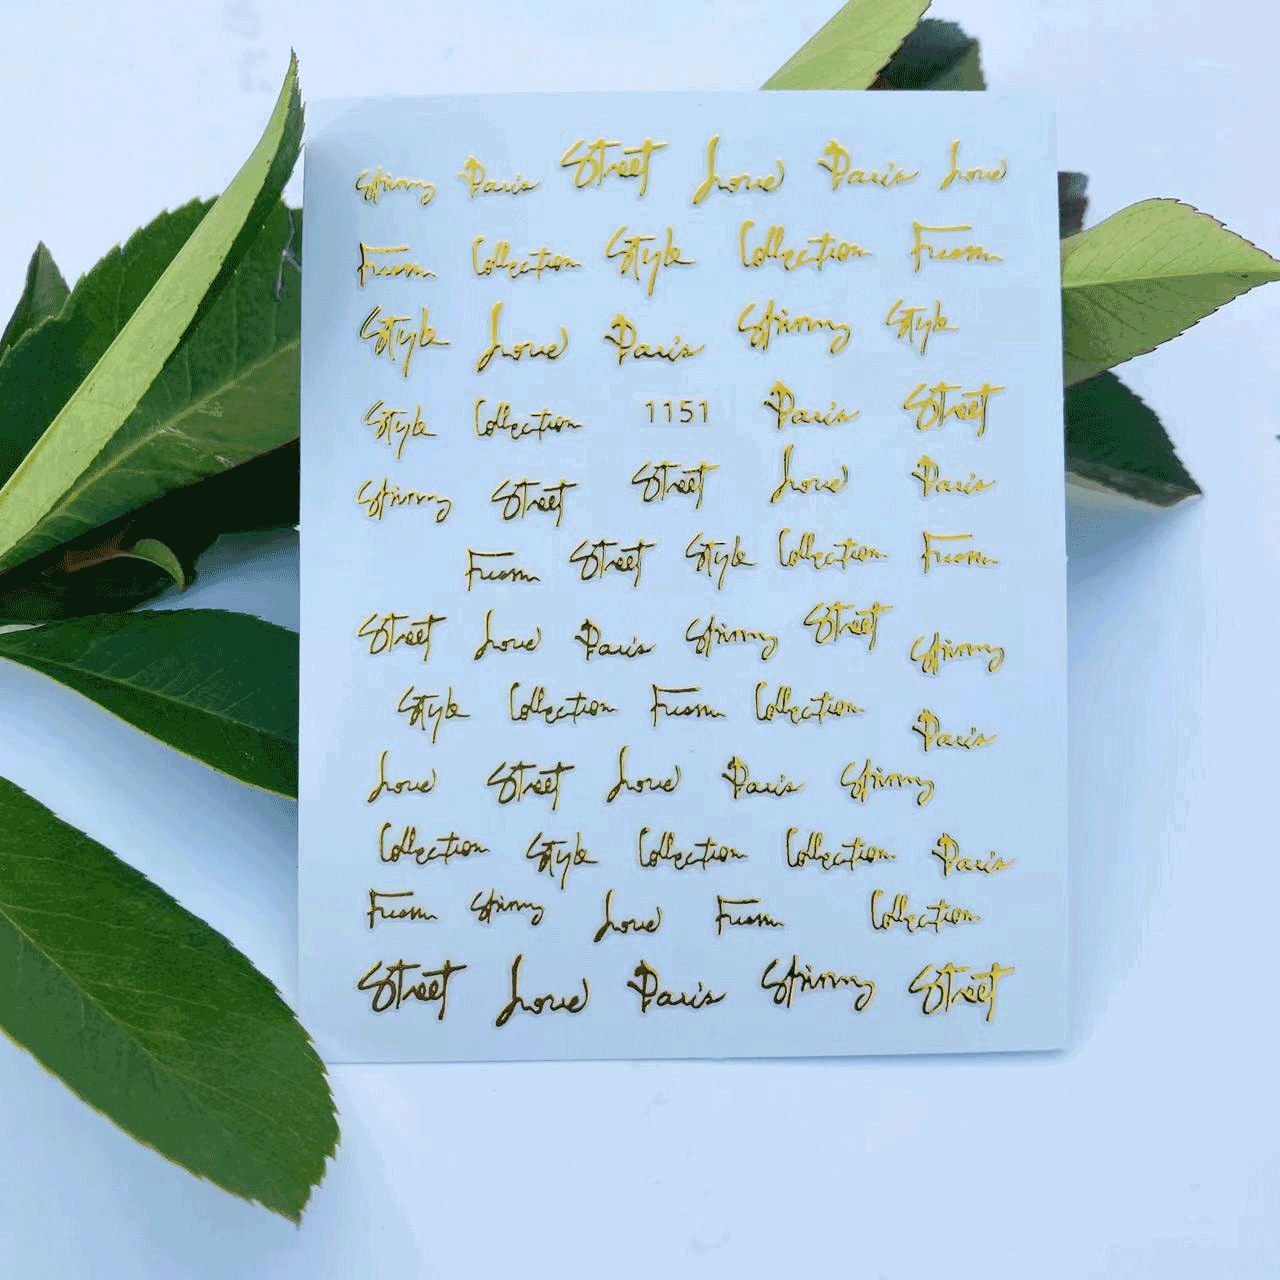 Spinny Paris Street Love Paris Love
From Collection Style Collection From
Style Love Paris Spinny Style
Style Collection 1151 Paris Street
Spinny Street Street Love Paris
From Street Style Collection From
Street Love Paris Spinny Street Spinny
Style Collection From Collection Paris
Love Street Love Paris Spinny
Collection Style Collection Collection Paris
From Spinny Love From Collection
Street Love Paris Spinny Street